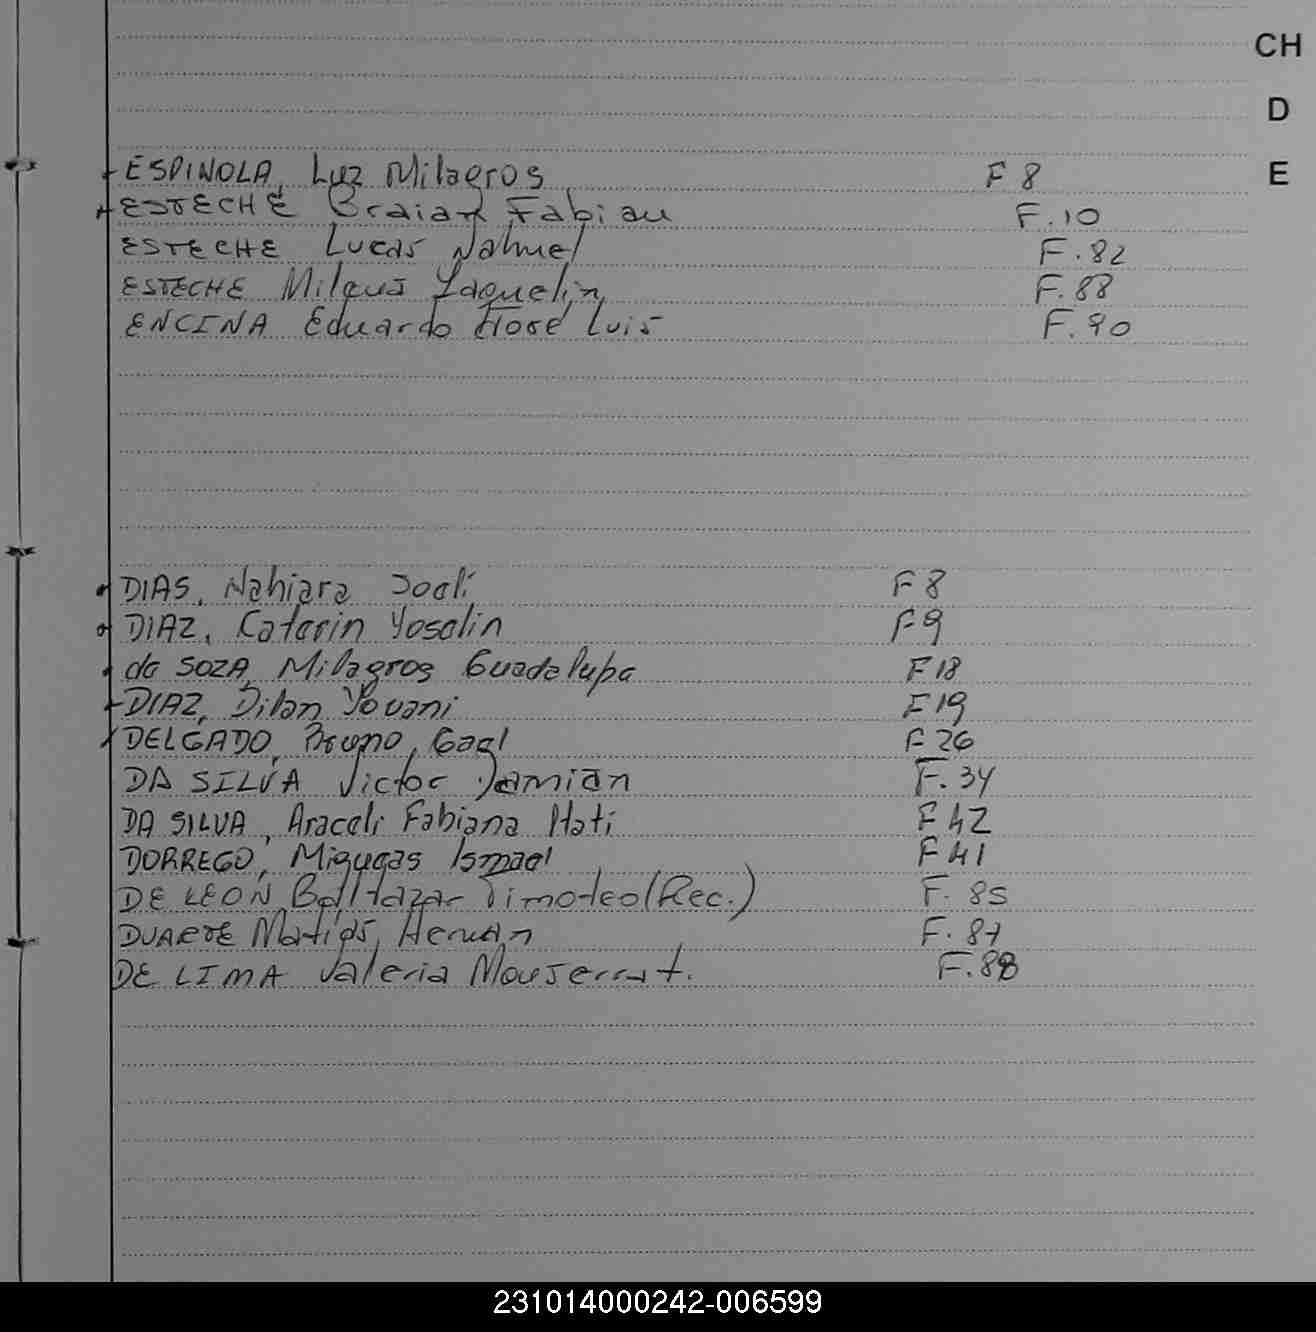 CH
D
E
ESPINOLA, Luz Milagros F 8
ESTECHE Braian Fabian F.10
ESTECHE Lucas Nahuel F.82
ESTECHE Milaus Yaquelin F.88
ENCINA Eduardo José Luis F.90
DIAS, Nahiara Joali F 8
DIAZ, Caterin Yoselin F 9
de SOZA, Milagros Guadalupe F 18
DIAZ, Dilan Yovani F 19
DELGADO, Bruno, Gael F 26
DA SILVA Victor Damián F.34
DA SILVA, Araceli Fabiana Itati F 42
DORREGO, Ismael F 41
DE LEON Baltazar Timoteo (Rec.) F. 85
DUARTE Matías, Hernán F. 87
DE LIMA Valeria Monserrat. F.88
231014000242-006599